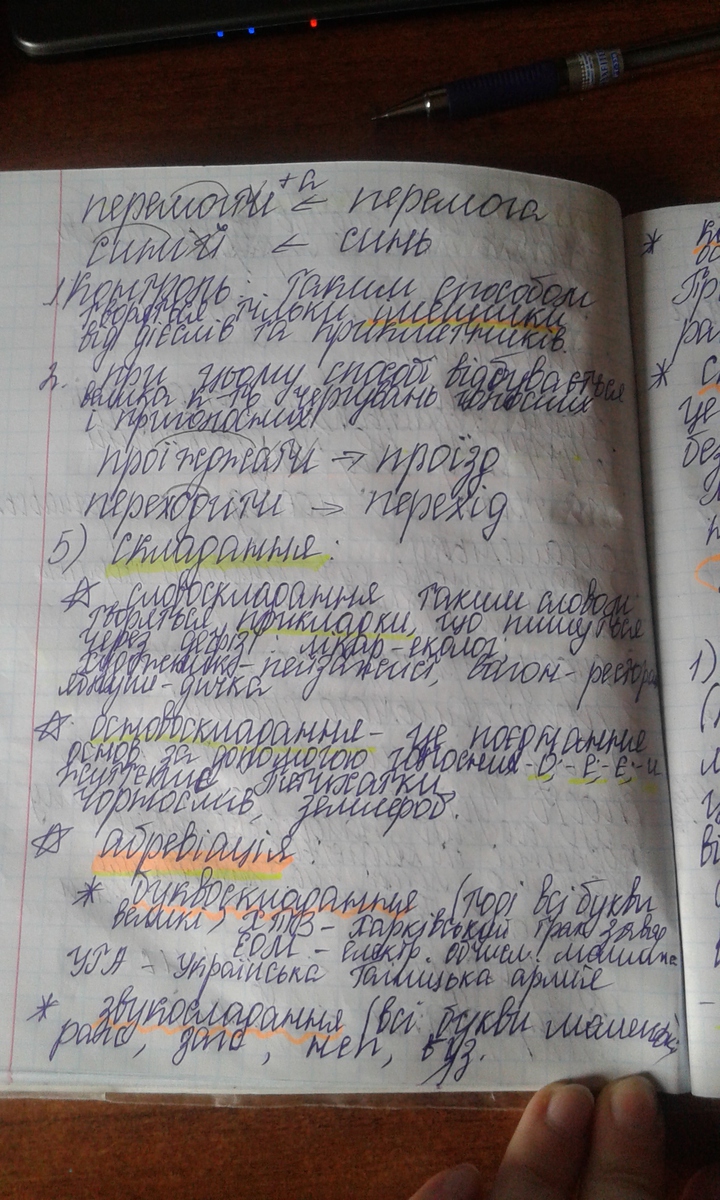 перемогти +а < перемога
синій < синь
1. Контроль: таким способом
творяться тільки іменники
від дієслів та прикметників.
2. при цьому способі відбувається
велика к-ть чергувань голосних
і приголосних
проїжджати → проїзд
переходити → перехід
5) складання:
словоскладання таким словом
творяться прикладки, що пишуться
через дефіз: лікар-еколог,
художник-пейзажист, вагон-ресторан
дичка
основоскладання - це поєднання
основ за допомогою голосних -о-, -е-, -є-, -и
п'ятихатки,
чорнослив, землероб.
абревіація:
* буквоскладання (тоді всі букви
великі) ХТЗ - Харківський трак. завод
ЕОМ - електр. обчисл. машина
УГА - Українська Галицька армія
* звукоскладання (всі букви маленькі
рагс, загс, неп, вуз.
*
*
1)